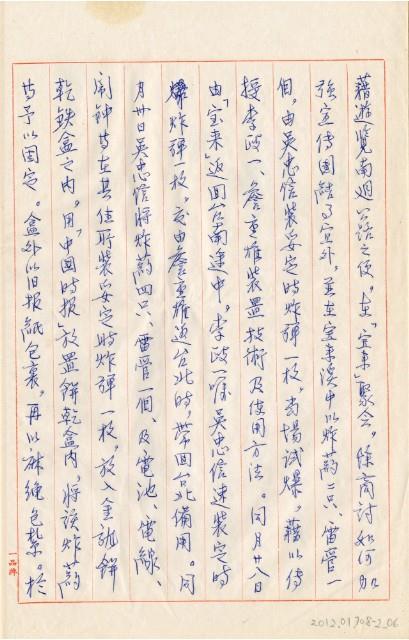 藉遊覽南迴公路之便。在「宜來」聚会。除商討如何加
強宣傳团結等宜外，並在宜來溪中以炸药二只、雷管一
個。由吳忠信裝妥定時炸弹一枚，当場试爆，藉以傳
授李政一、詹重雄裝置技術及使用方法。同月廿八日
由「宝来」返回台南途中，李政一嘱吳忠信速裝定時
爆炸弹一枚。交由詹重雄返台北時，带回台北備用。同
月廿日吳忠信將炸药四只、雷管一個、及電池、電線、
闹钟等在其住所裝妥定時炸弹一枚，放入金龍餅
乾鉄盒之內。用「中国時报」放置餅乾盒內，將該炸药
等予以固定。盒外以旧报紙包裹，再以麻绳包紮。於
一品牌
2012.01.708-2_06